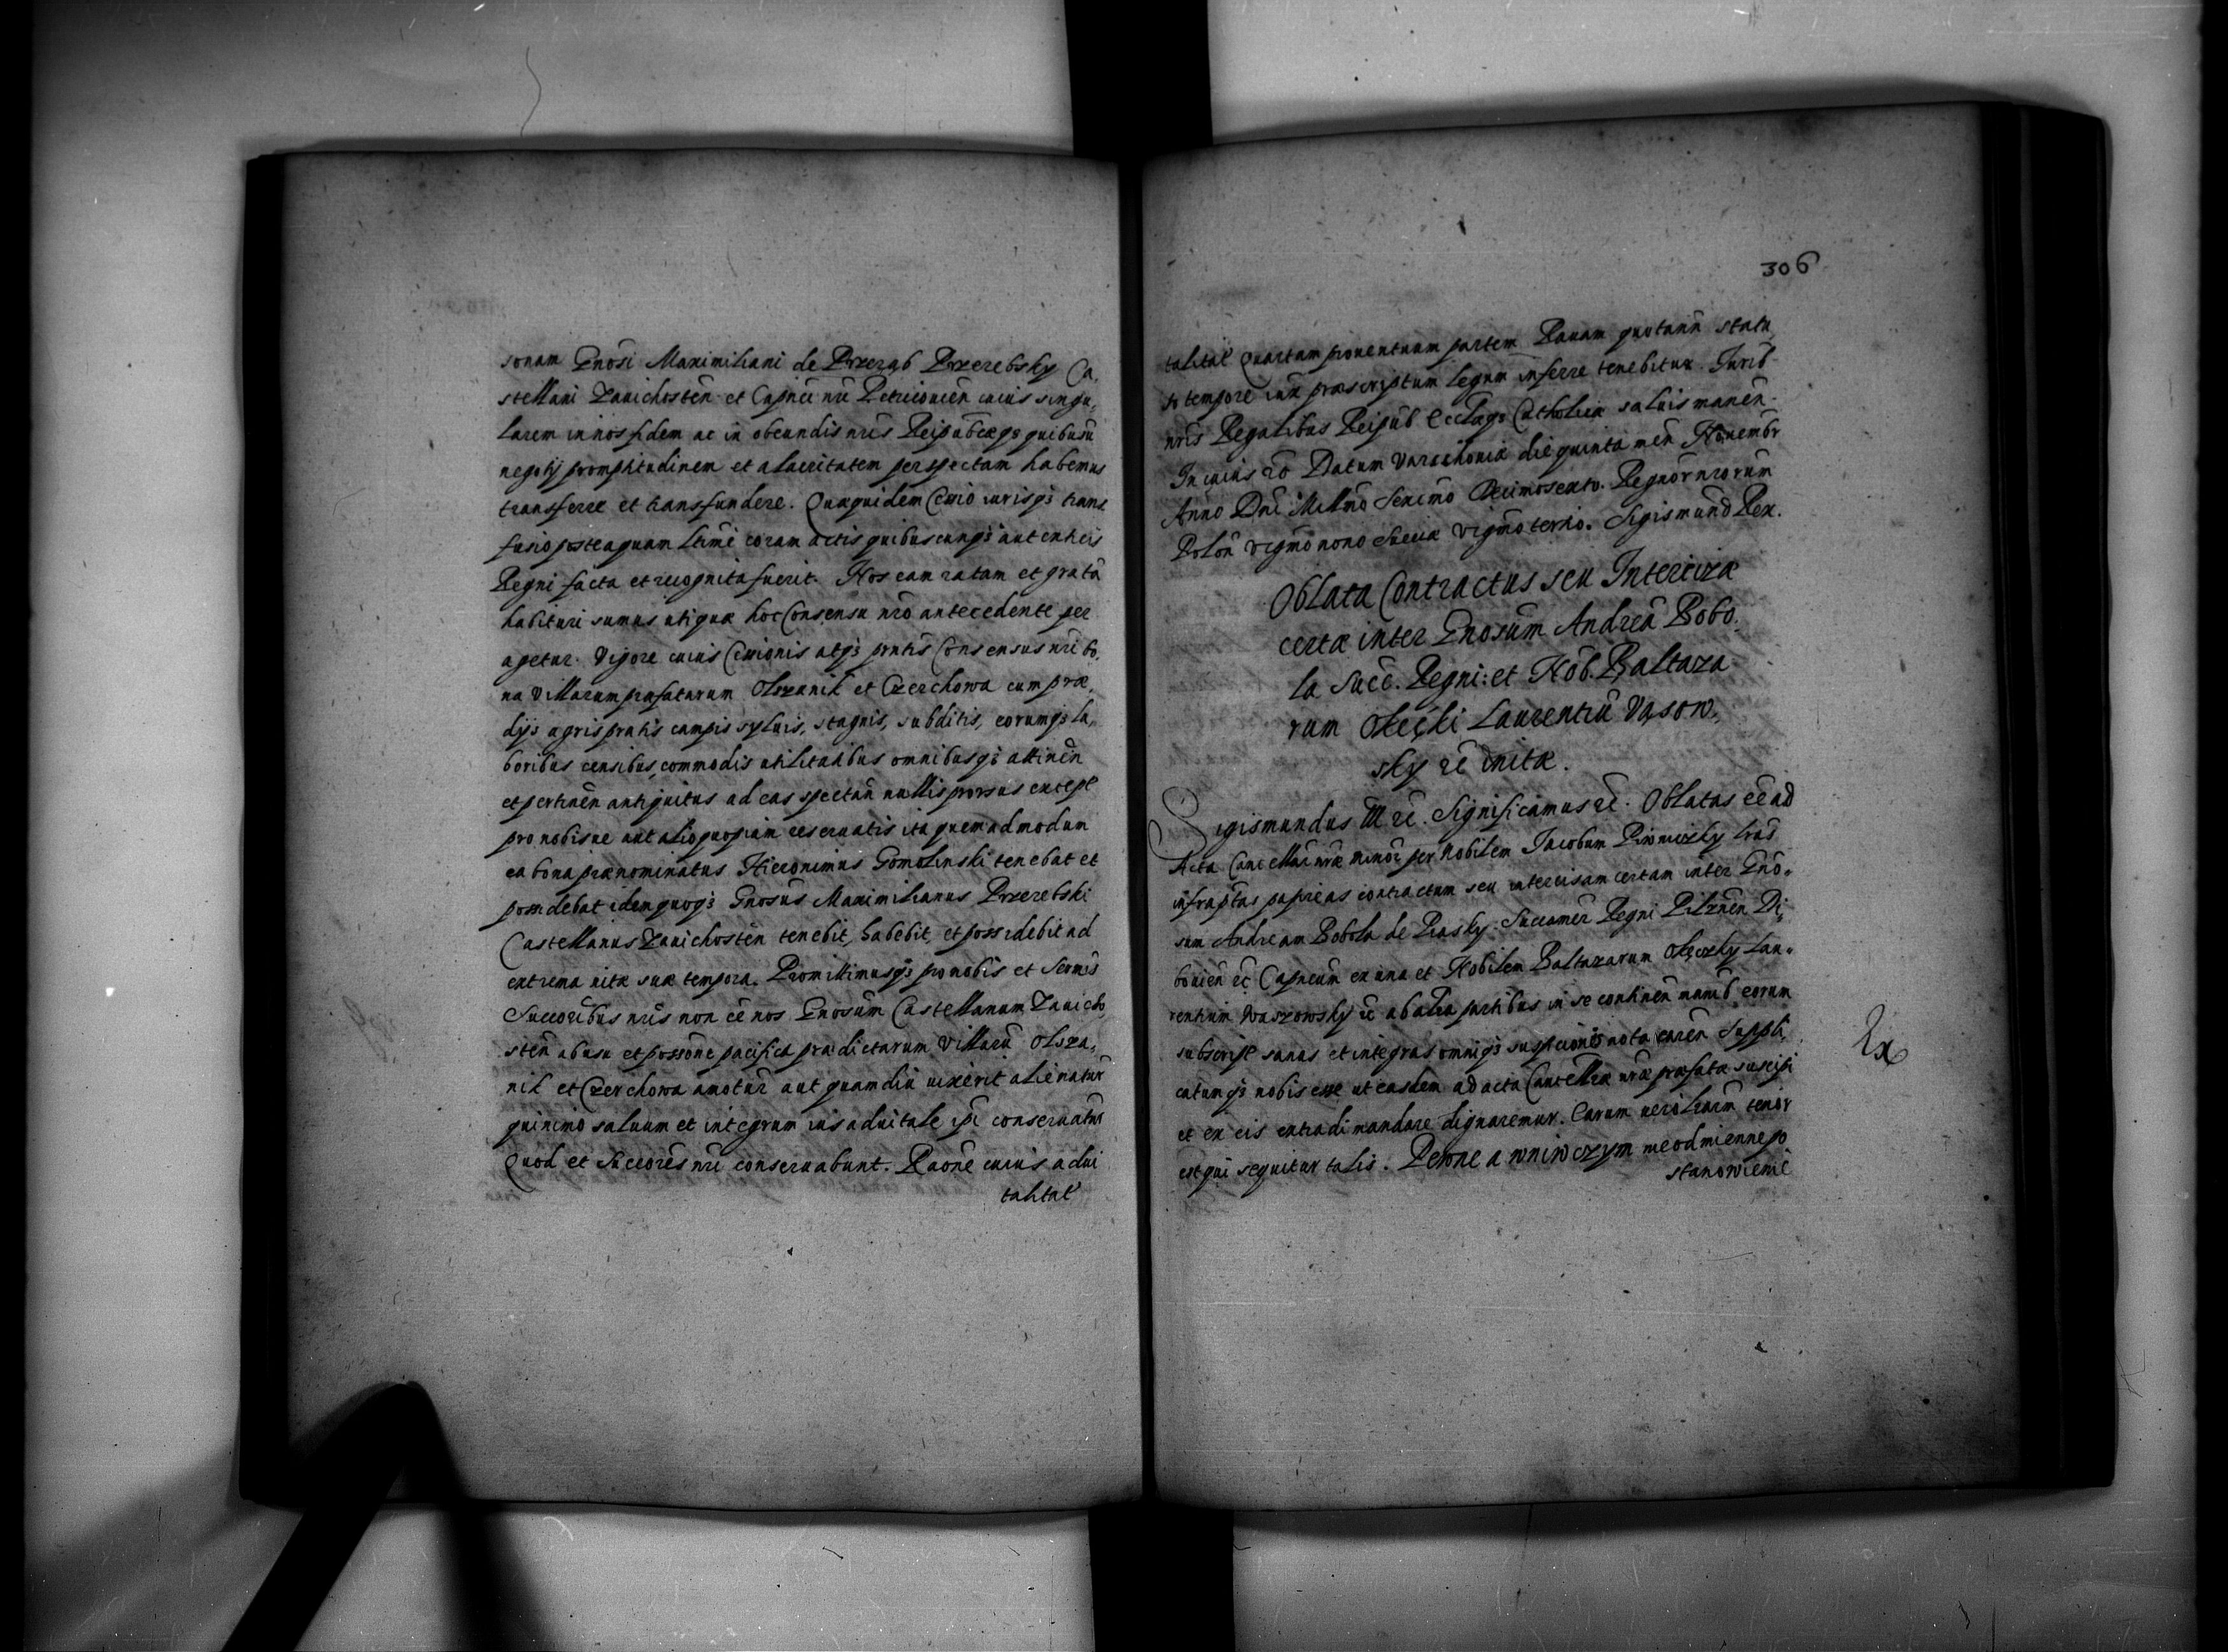 sonam Gnosi Maximiliani de Przerąb Przerebsky Ca,
stellani Zauichosten et Capnei nri Petricouien cuius singu,
larem in nos fidem ac in obeundis nris Reipubcaeqȝ quibusu
negotÿ promptitudinem et alacritatem perspectam habemus
transferre et transfundere. Quaequidem Cessio iurisqȝ trans
fusio posteaquam ltime coram actis quibuscunqȝ autenticis
Regni facta et recognita fuerit. Nos eam ratam et gratā
habituri sumus utiquae hoc Consensu nro antecedente per
agetur. Vigore cuius Cessionis atqȝ pntis Consensus nri bo,
na Villarum praefatarum Olszanik et Czerchowa cum prae,
dÿs agris pratis campis syluis, stagnis, subditis, eorumqȝ la,
boribus censibus, commodis utilitatibus omnibusqȝ attinēn
et pertinēn antiquitus ad eas spectān nullis prorsus except
pro nobis ue aut alio quopiam reseruatis ita quemadmodum
ea bona praenominatus Hieronimus Gomolinski tenebat et
possidebat idem quoqȝ Gnosus Maximilianus Przerebski
Castellanus Zauichostēn tenebit, habebit, et possidebit ad
extrema uitae suae tempora. Promittimusqȝ pro nobis et Sermis
Succoribus nris non ēe nos Gnosūm Castellanum Zauicho
stēn ab usu et possone pacifica praedictarum Villarū Olsza,
nik et Czerchowa amotur aut quamdiu uixerit alienatur
quinimo saluum et integrum ius aduitale ipi conseruatur
Quod et Succores nri conseruabunt. Raone cuius adui
talitat
306
talitat Quartam prouentuum partem Rauam quotann statu
to tempore iux praescriptum legum inferre tenebitur. Iurib
nris Regalibus Reipub Ecclaeqȝ Catholicae saluis manēn.
In cuius rō Datum Varschouiae die quinta men Nouembr
Anno Dni Millmo Sexcmo Decimosexto. Regnor nrorum
Polon vigmo nono Sueciae vigmo tertio. Sigismund Rex.
Oblata Contractus seu Intercizae
certae inter Gnosum Andreā Bobo,
la Succ. Regni: et Nob. Baltaza
rum Olęcki Laurentiū Vąsow,
sky ꝛc initae.
Sigismundus III ꝛc. Significamus ꝛc. Oblatas ēe ad
Acta Cancellae nrae minor per Nobilem Iacobum Piwnicky lras
infraptas papireas contractum seu intercisam certam inter Gno,
sum Andream Bobola de Piasky Succamer Regni Pilznēn Di,
bouien ꝛc Capneum ex una et Nobilem Baltazarum Olęczky Lau,
rentium Wąszowsky ꝛc ab altera partibus in se continēn manib eorum
subscript sanas et integras omniqȝ suspicionis nota carēn Suppli,
catumqȝ nobis esse ut easdem ad acta Cancellae nrae praefata suscipi
et ex eis extradi mandare dignaremur. Earum uero lrarm tenor
est qui sequitur talis. Pewne a wniwczym nieodmienne po
stanowienie